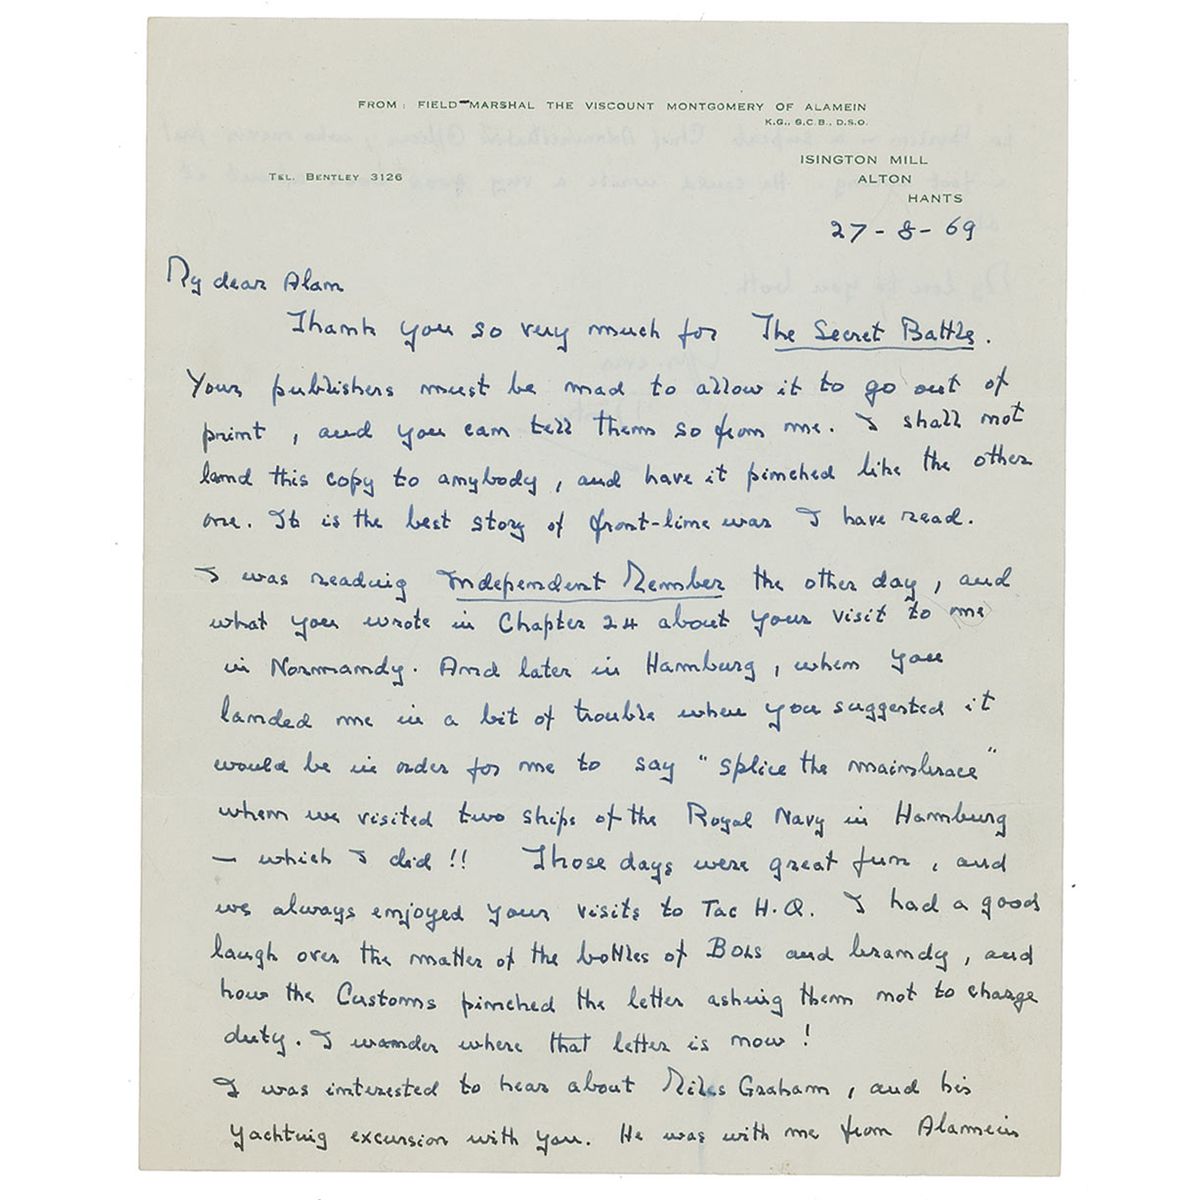 FROM: FIELD-MARSHAL THE VISCOUNT MONTGOMERY OF ALAMEIN
K.G., G.C.B., D.S.O.
ISINGTON MILL
TEL. BENTLEY 3126
ALTON
HANTS
27-8-69
My dear Alan
Thank you so very much for The Secret Battle.
Your publishers must be mad to allow it to go out of
print, and you can tell them so from me. I shall not
lend this copy to anybody, and have it pinched like the other
one. It is the best story of front-line war I have read.
I was reading Independent Member the other day, and
what you wrote in Chapter 24 about your visit to me
in Normandy. And later in Hamburg, when you
landed me in a bit of trouble when you suggested it
would be in order for me to say "splice the mainbrace"
when we visited two ships of the Royal Navy in Hamburg
— which I did!! Those days were great fun, and
we always enjoyed your visits to Tac H.Q. I had a good
laugh over the matter of the bottles of Bols and brandy, and
how the Customs pinched the letter asking them not to charge
duty. I wonder where that letter is now!
I was interested to hear about Miles Graham, and his
yachting excursion with you. He was with me from Alamein